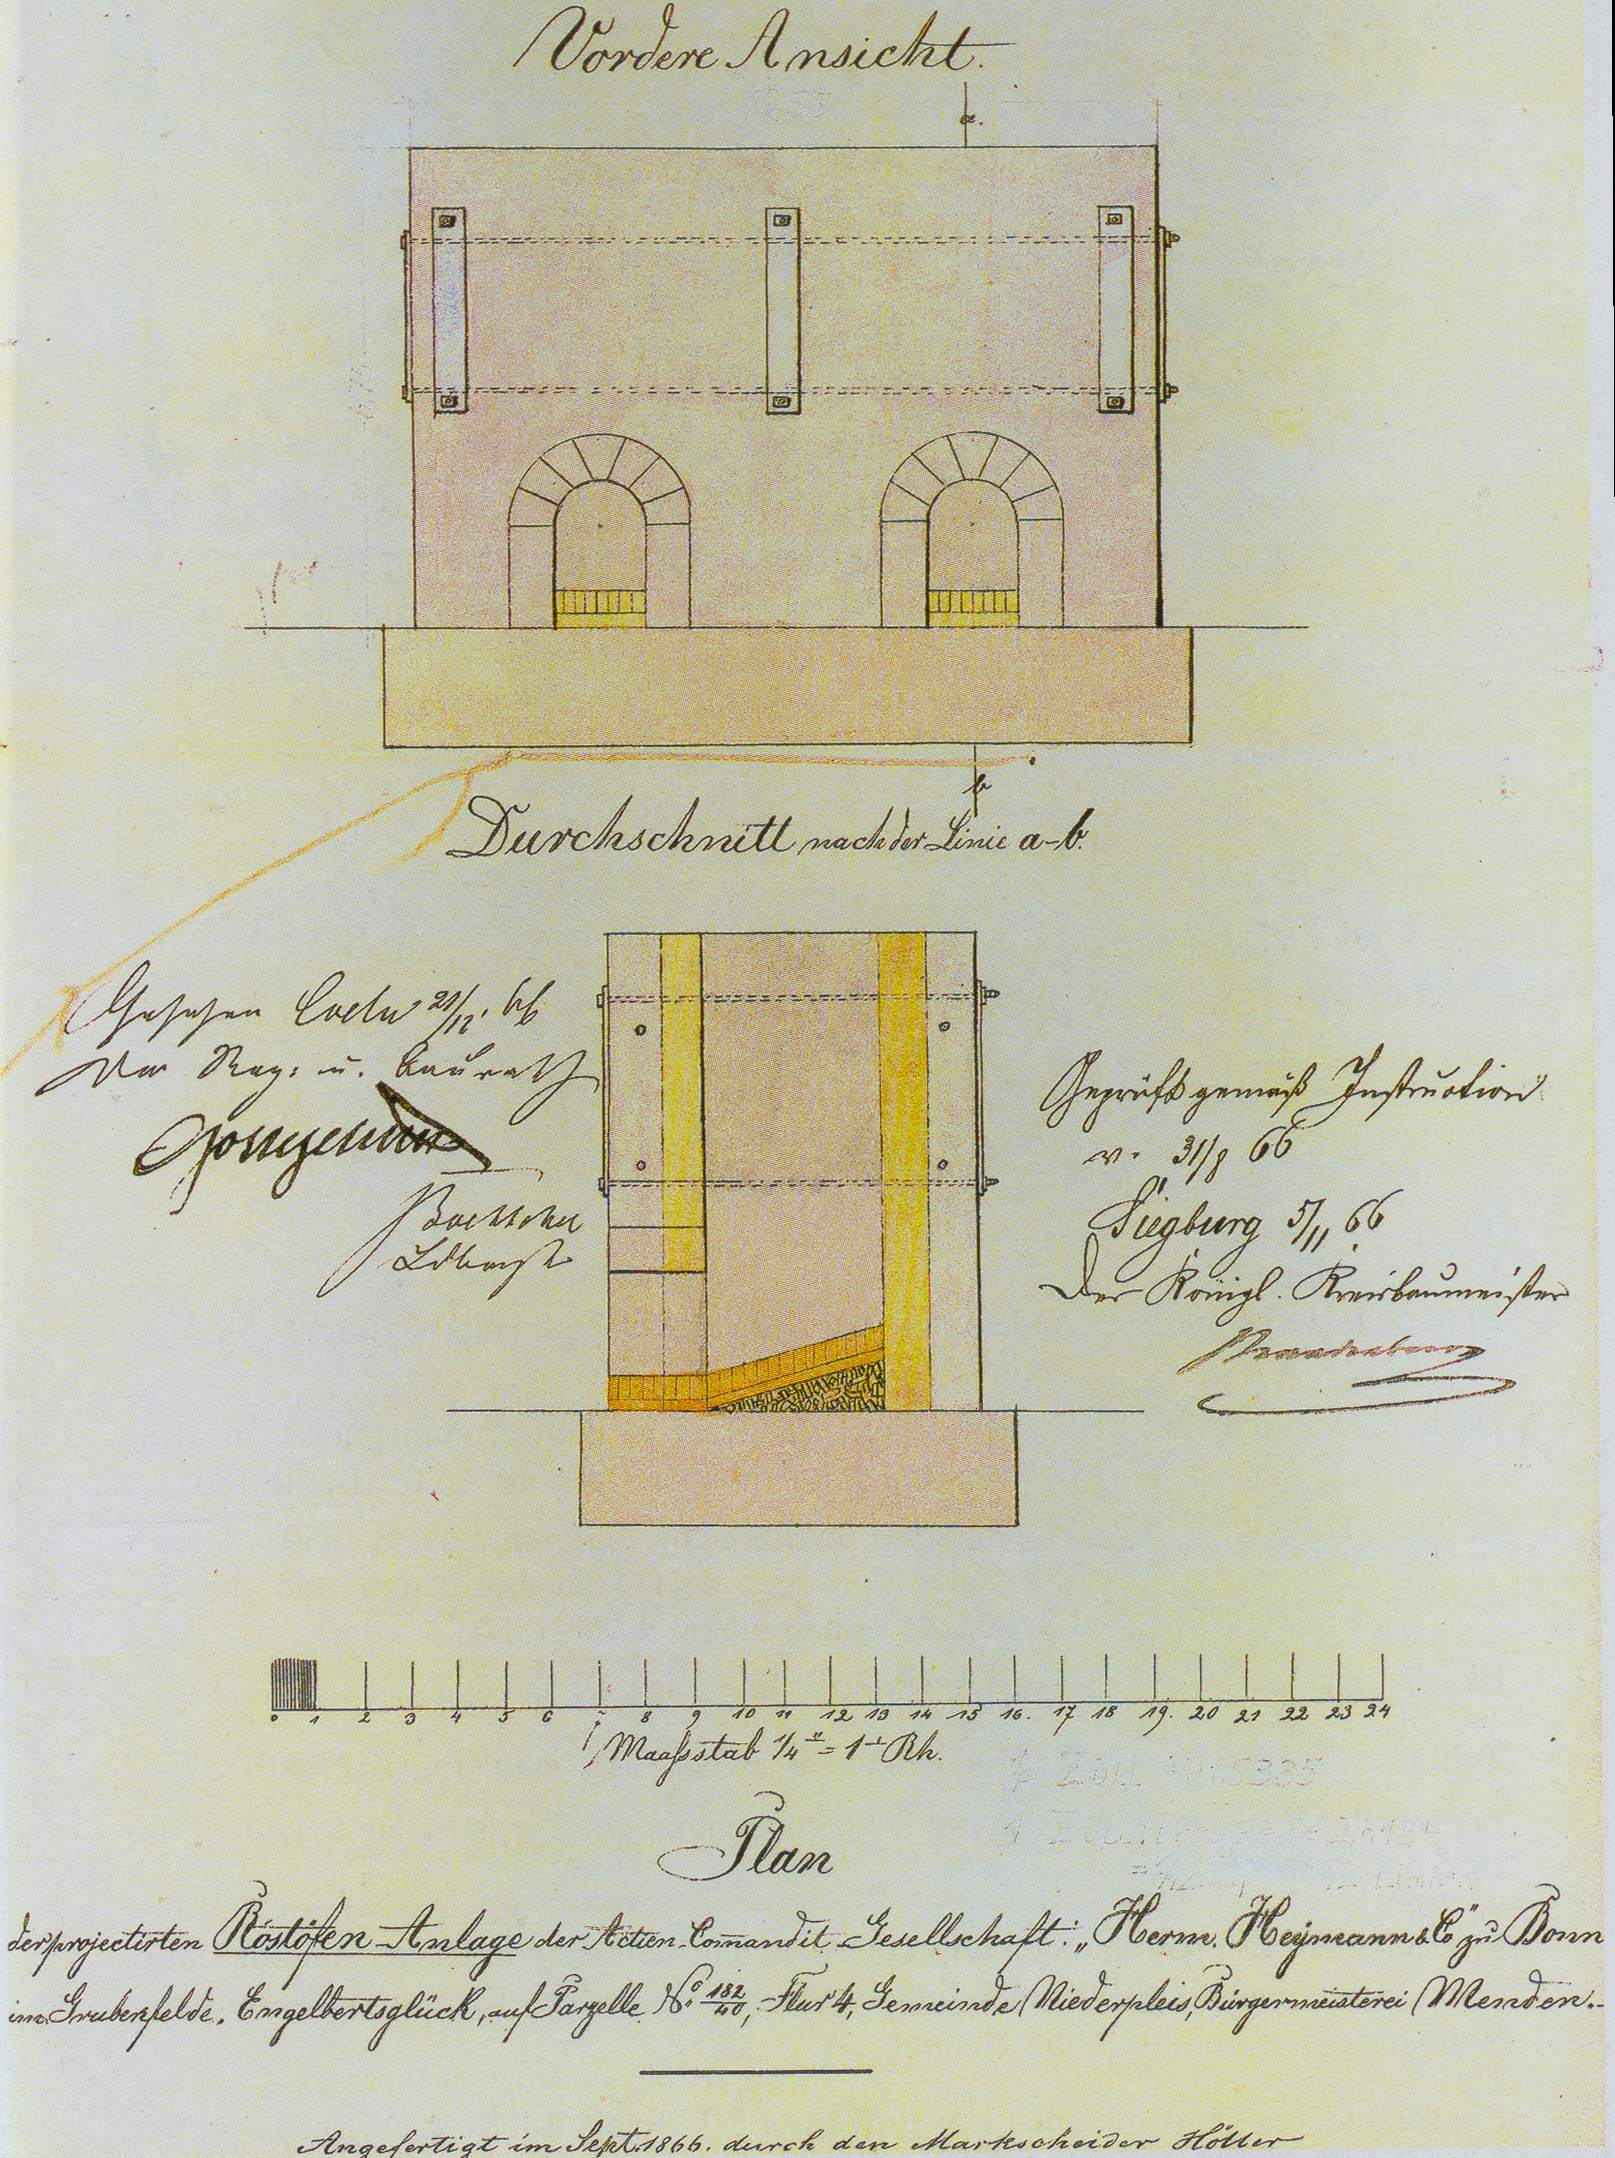 Vordere Ansicht.
a.
b
Durchschnitt nach der Linie a-b.
Gesehen Coeln 21/12. 66
Der Reg: u. Baurath
Geprüft gemäß Instruction
v. 31/8 66
Siegburg 5/11 66
Der Königl. Kreisbaumeister
0 1 2 3 4 5 6 7 8 9 10 11 12 13 14 15 16. 17 18 19. 20 21 22 23 24
Maaſsstab 1/4" = 1' Rh.
Plan
der projectirten Röstöfen-Anlage der Actien-Com̅andit-Gesellschaft: „Herm. Heymann & Co" zu Bonn
im Grubenfelde Engelbertsglück, auf Parzelle No. 182/40, Flur 4, Gemeinde Niederpleis, Bürgermeisterei Menden.-
Angefertigt im Sept. 1866. durch den Markscheider Höller